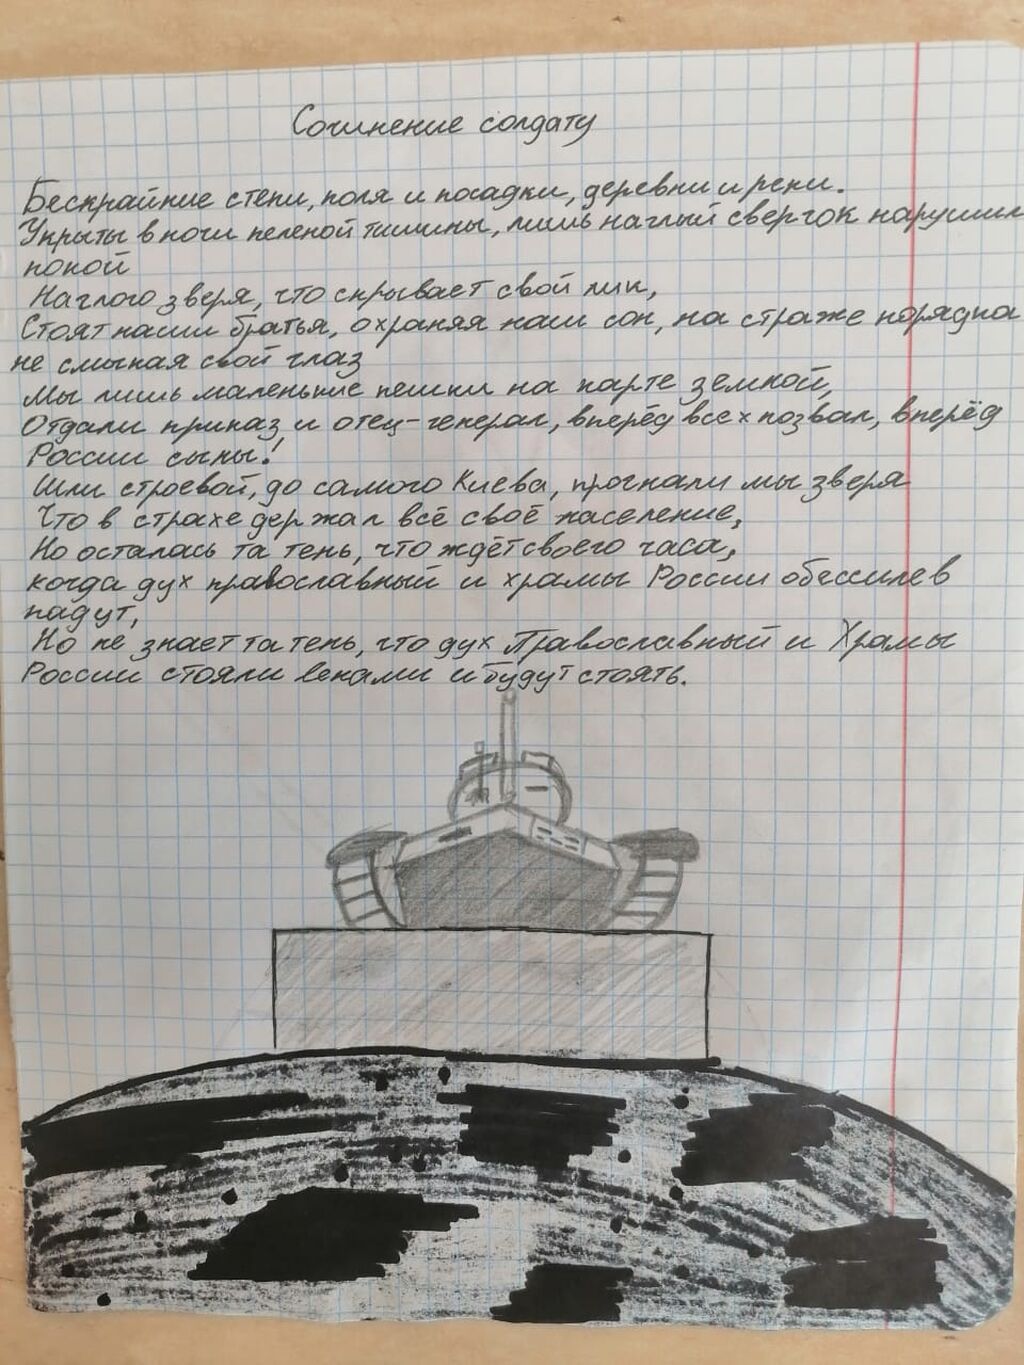 Сочинение солдату
Бескрайние степи, поля и посадки, деревни и реки.
Укрыты в ночи пеленой тишины, лишь наглый сверчок нарушил
покой
Наглого зверя, что скрывает свой лик,
Стоят наши братья, охраняя наш сон, на страже порядка
не смыкая свой глаз
Мы лишь маленькие пешки на карте земной,
Отдали приказ и отец-генерал, вперёд всех позвал, вперёд
России сыны!
Шли строевой, до самого Киева, прогнали мы зверя
Что в страхе держал всё своё население,
Но осталась та тень, что ждёт своего часа,
когда дух православный и храмы России обессилев
падут,
Но не знает та тень, что дух Православный и Храмы
России стояли веками и будут стоять.